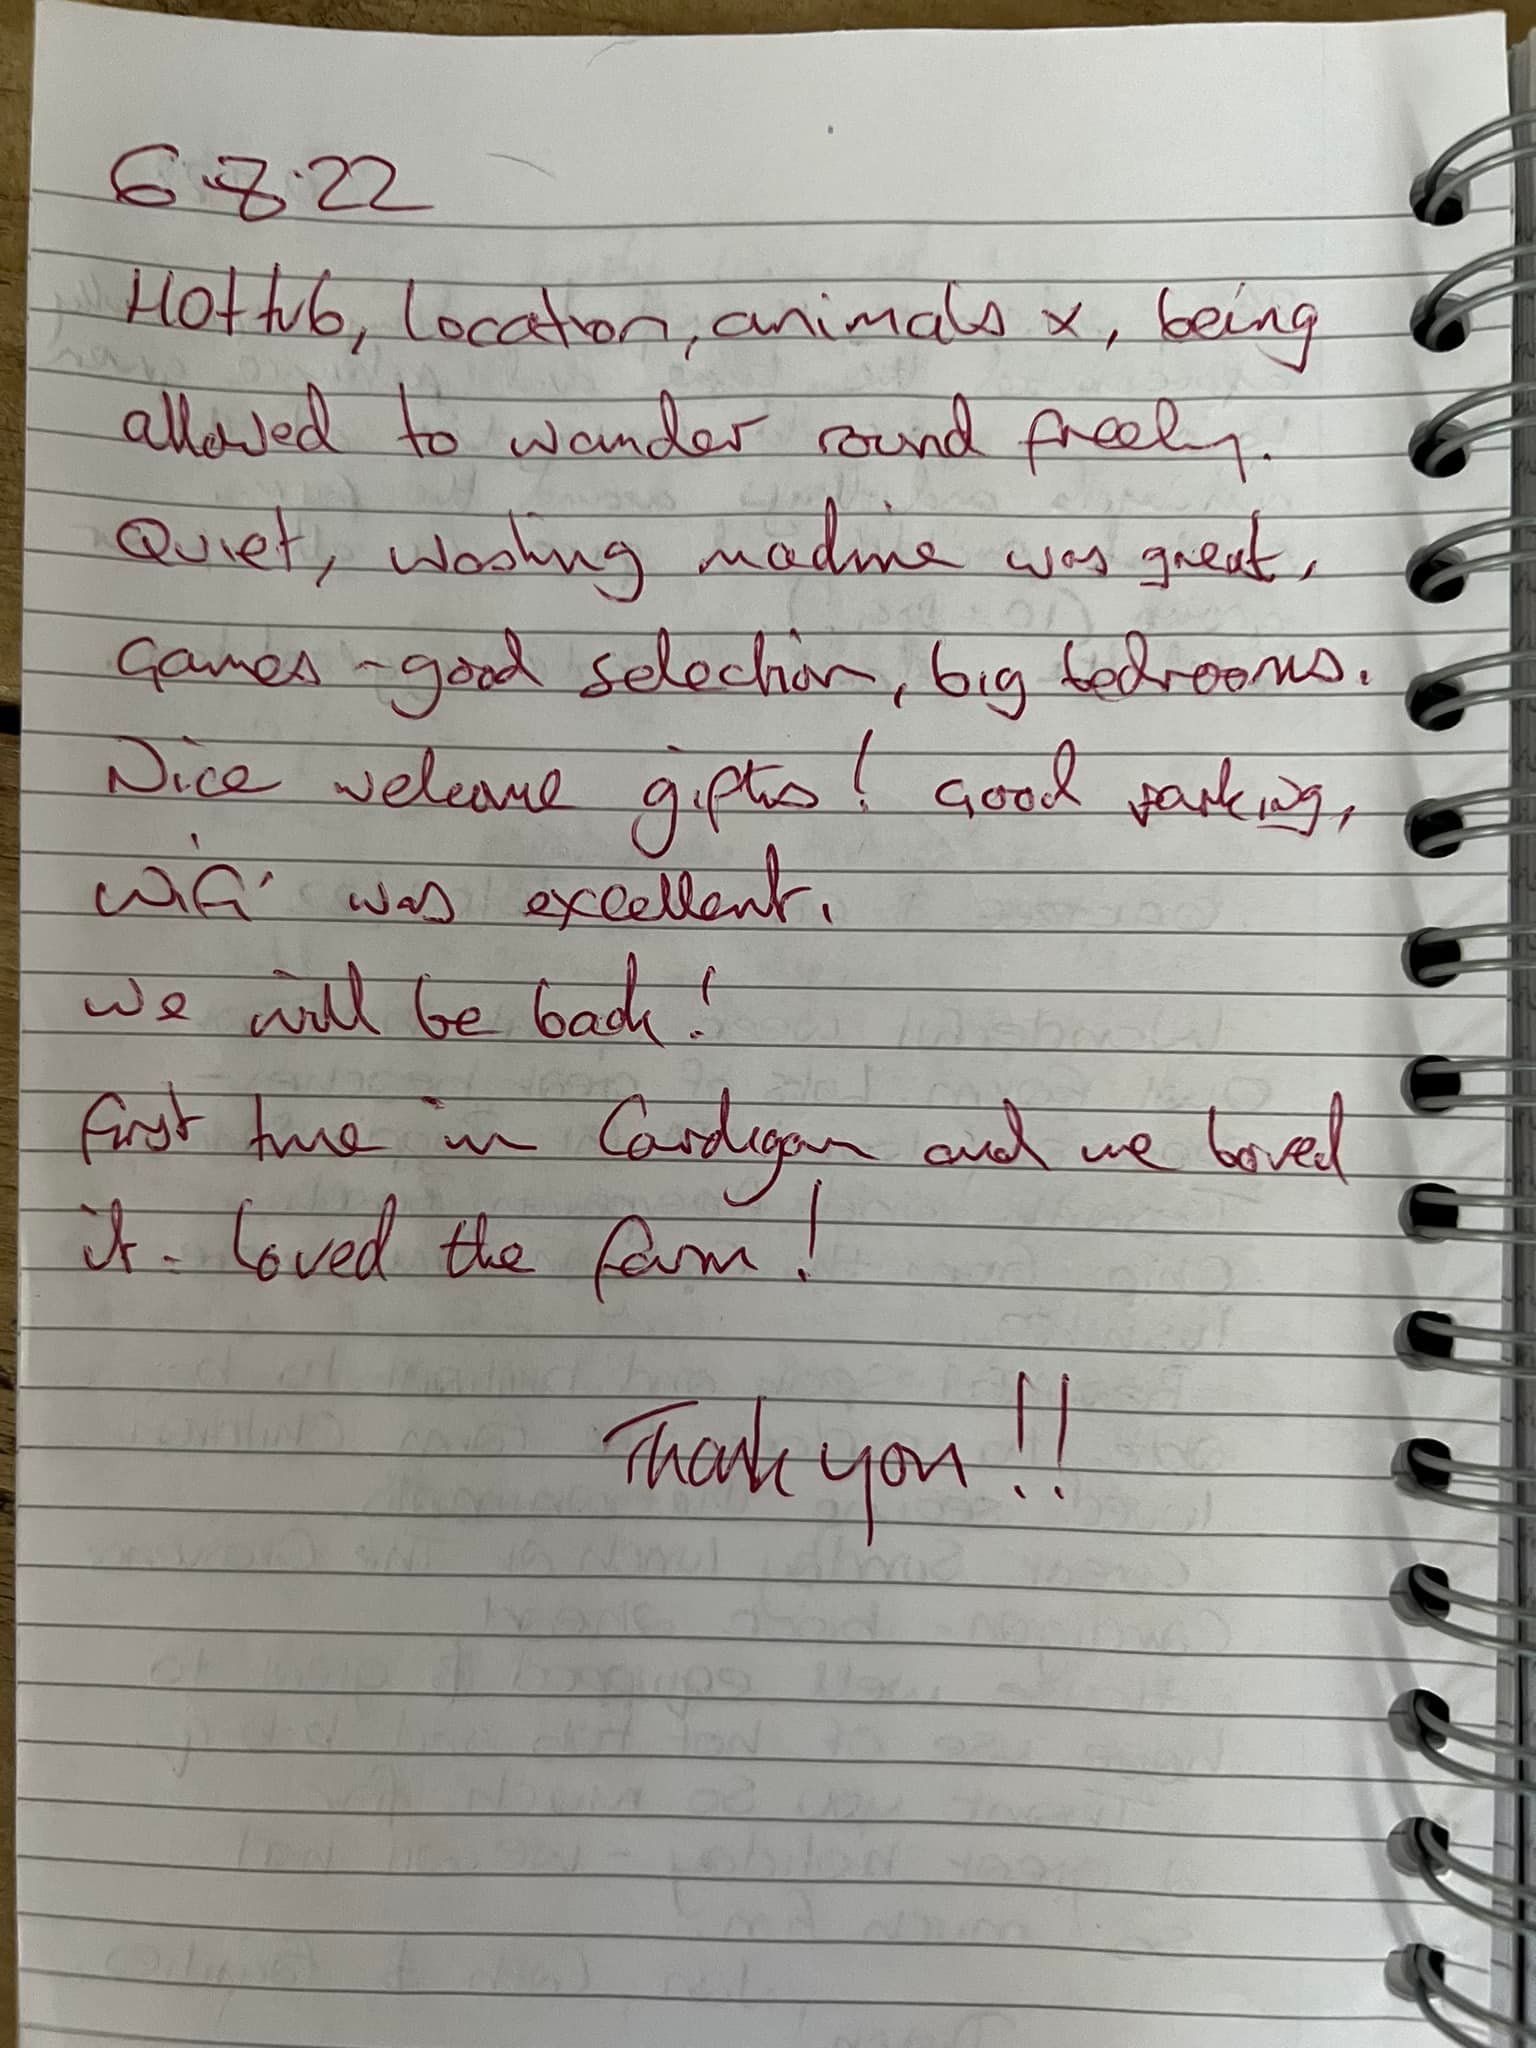 6.8.22
Hot tub, location, animals x, being
allowed to wander round freely.
Quiet, washing machine was great,
Games - good selection, big bedrooms.
Nice welcome gifts! Good parking,
WiFi was excellent.
We will be back!
First time in Cardigan and we loved
it - loved the farm!
Thank you!!